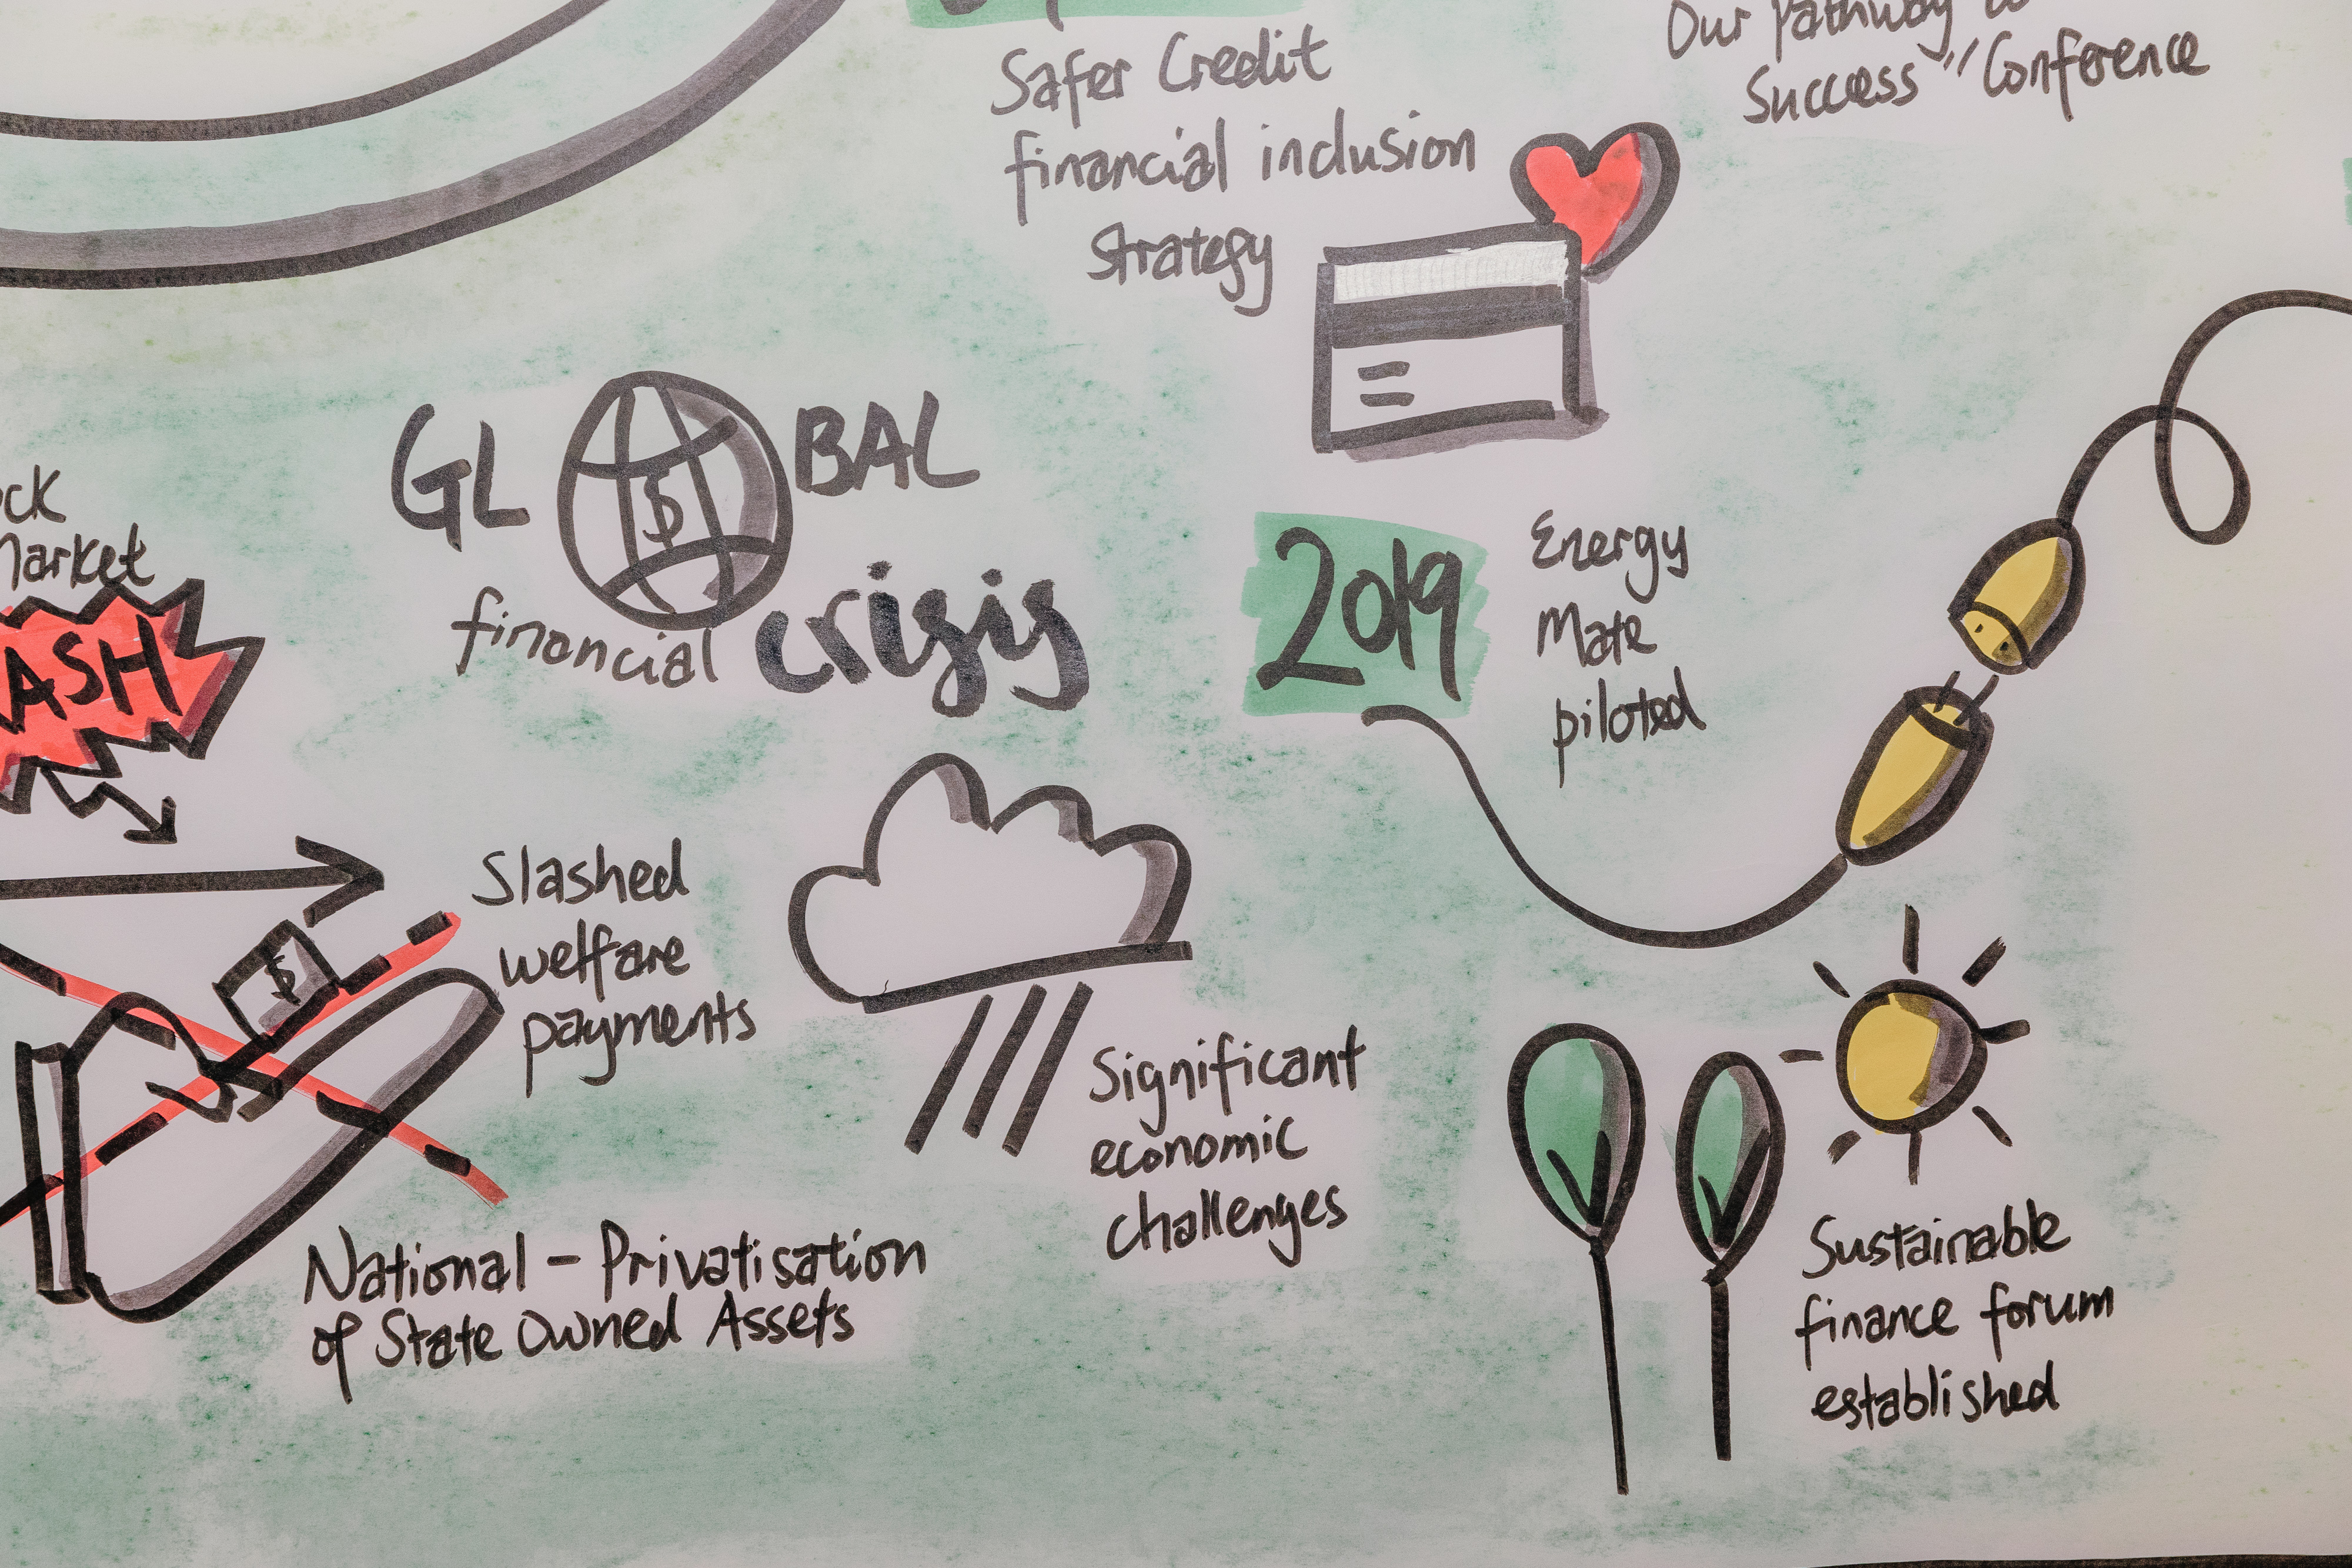 Safer Credit
financial inclusion
strategy
Our Pathway to
Success" Conference
GLOBAL
$
financial crisis
Market
2019
Energy
Mate
piloted
Slashed
welfare
payments
$
Significant
economic
challenges
National - Privatisation
of State Owned Assets
Sustainable
finance forum
established